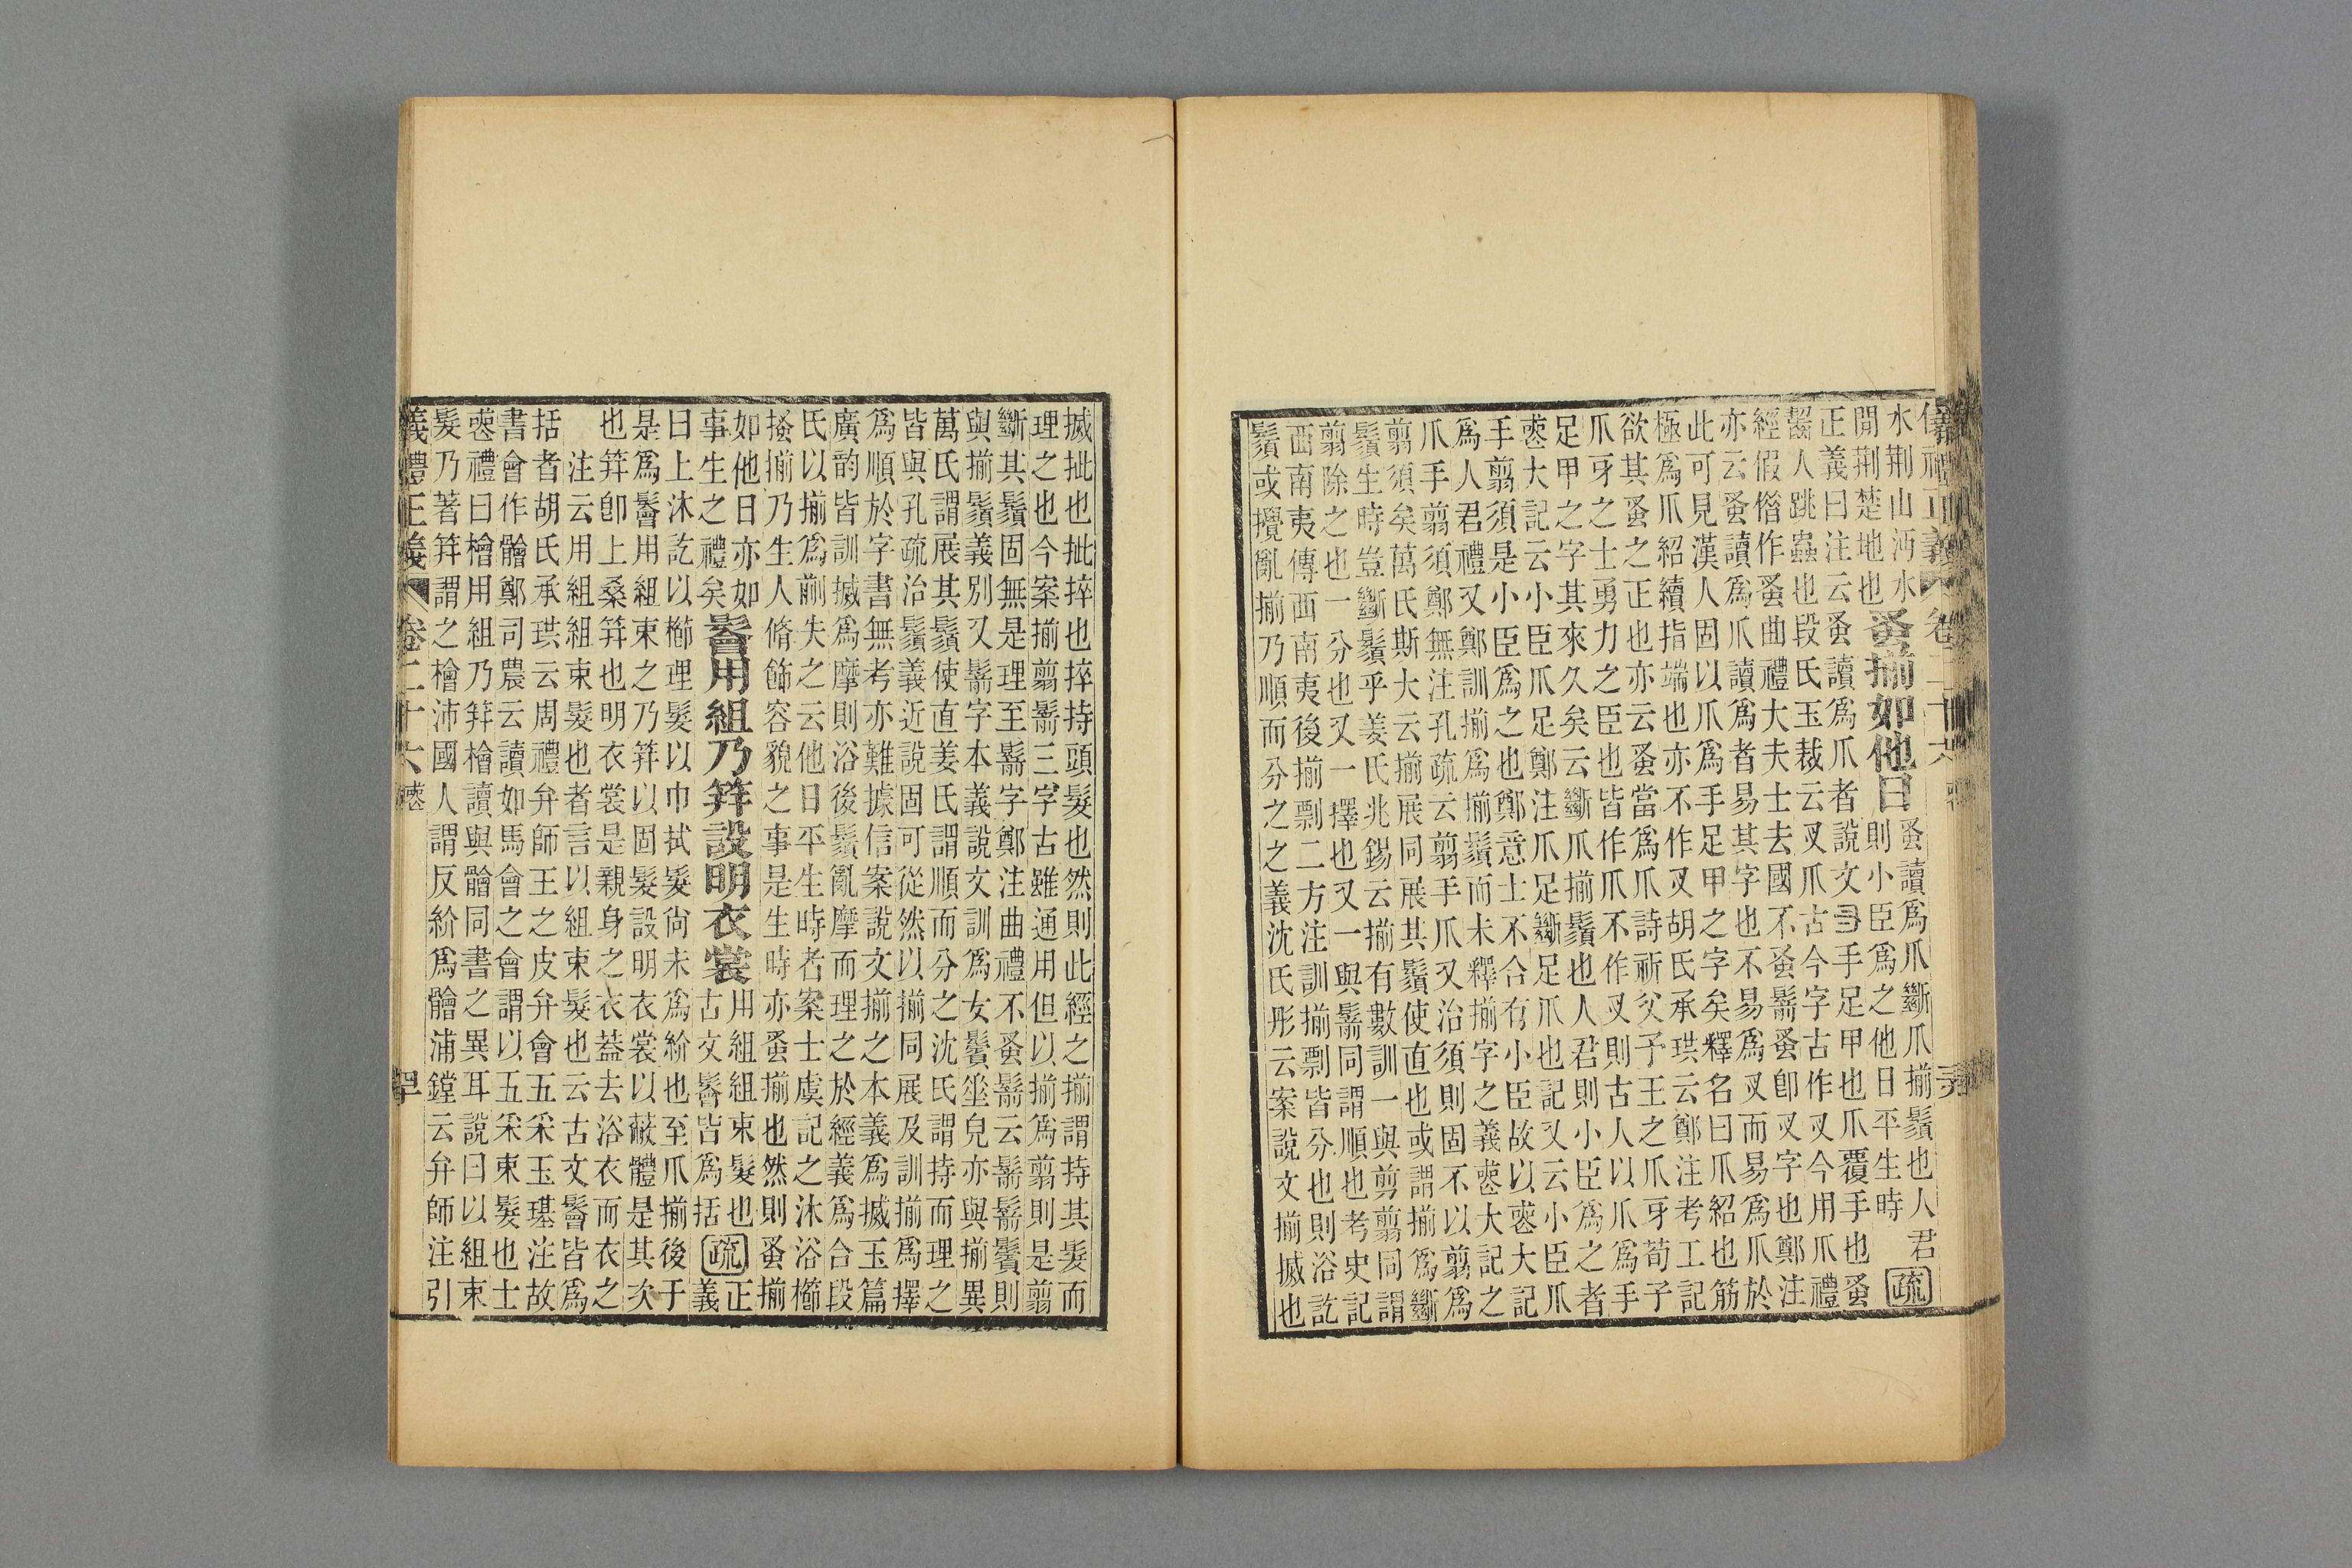 儀禮正義 卷二十六
水荆山沔水
閒荆楚地也
蚤揃如他日
蚤讀爲爪斷爪揃鬚也人君
則小臣爲之他日平生時
疏
正義曰注云蚤讀爲爪者說文
手足甲也爪覆手也蚤
齧人跳蟲也段氏玉裁云叉爪古今字古作叉今用爪禮
經假僭作蚤曲禮大夫士去國不蚤鬋蚤卽叉字也鄭注
亦云蚤讀爲爪讀爲者易其字也不易爲叉而易爲爪於
此可見漢人固以爪爲手足甲之字矣釋名曰爪紹也筋
極爲爪紹續指端也亦不作叉胡氏承珙云鄭注考工記
欲其蚤之正也亦云蚤當爲爪詩祈父予王之爪牙荀子
爪牙之士勇力之臣也皆作爪不作叉則古人以爪爲手
足甲之字其來久矣云斷爪揃鬚也人君則小臣爲之者
喪大記云小臣爪足鄭注爪足斷足爪也記又云小臣爪
手翦須是小臣爲之也鄭意士不合有小臣故以喪大記
爲人君禮又鄭訓揃爲揃鬚而未釋揃字之義喪大記之
爪手翦須鄭無注孔疏云翦手爪又治須則固不以翦爲
翦須矣萬氏斯大云揃展同展其鬚使直也或謂揃爲斷
鬚生時豈斷鬚乎姜氏兆錫云揃有數訓一與剪翦同謂
翦除之也一分也又一擇也又一與鬋同謂順也考史記
西南夷傳西南夷後揃剽二方注訓揃剽皆分也則浴訖
鬚或攪亂揃乃順而分之之義沈氏彤云案說文揃搣也
搣批也批捽也捽持頭髮也然則此經之揃謂持其髮而
理之也今案揃翦鬋三字古雖通用但以揃爲翦則是翦
斷其鬚固無是理至鬋字鄭注曲禮不蚤鬋云鬋鬢則
與揃鬚義別又鬋字本義說文訓爲女鬢垂皃亦與揃異
萬氏謂展其鬚使直姜氏謂順而分之沈氏謂持而理之
皆與孔疏治鬚義近說固可從然以揃同展及訓揃爲擇
爲順於字書無考亦難據信案說文揃之本義爲搣玉篇
廣韵皆訓搣爲摩則浴後鬚亂摩而理之於經義爲合段
氏以揃爲剬失之云他日平生時者案士虞記之沐浴櫛
搔揃乃生人脩飾容貌之事是生時亦蚤揃也然則蚤揃
如他日亦如
事生之禮矣
鬠用組乃笄設明衣裳
用組組束髮也
古文鬠皆爲括
疏
正
義
曰上沐訖以櫛理髮以巾拭髮尙未爲紒也至爪揃後于
是爲鬠用組束之乃笄以固髮設明衣裳以蔽體是其次
也笄卽上桑笄也明衣裳是親身之衣蓋去浴衣而衣之
注云用組組束髮也者言以組束髮也云古文鬠皆爲
括者胡氏承珙云周禮弁師王之皮弁會五采玉璂注故
書會作䯤鄭司農云讀如馬會之會謂以五采束髮也士
喪禮曰檜用組乃笄檜讀與䯤同書之異耳說曰以組束
髮乃著笄謂之檜沛國人謂反紒爲䯤浦鏜云弁師注引
義禮正義 卷二十六 喪